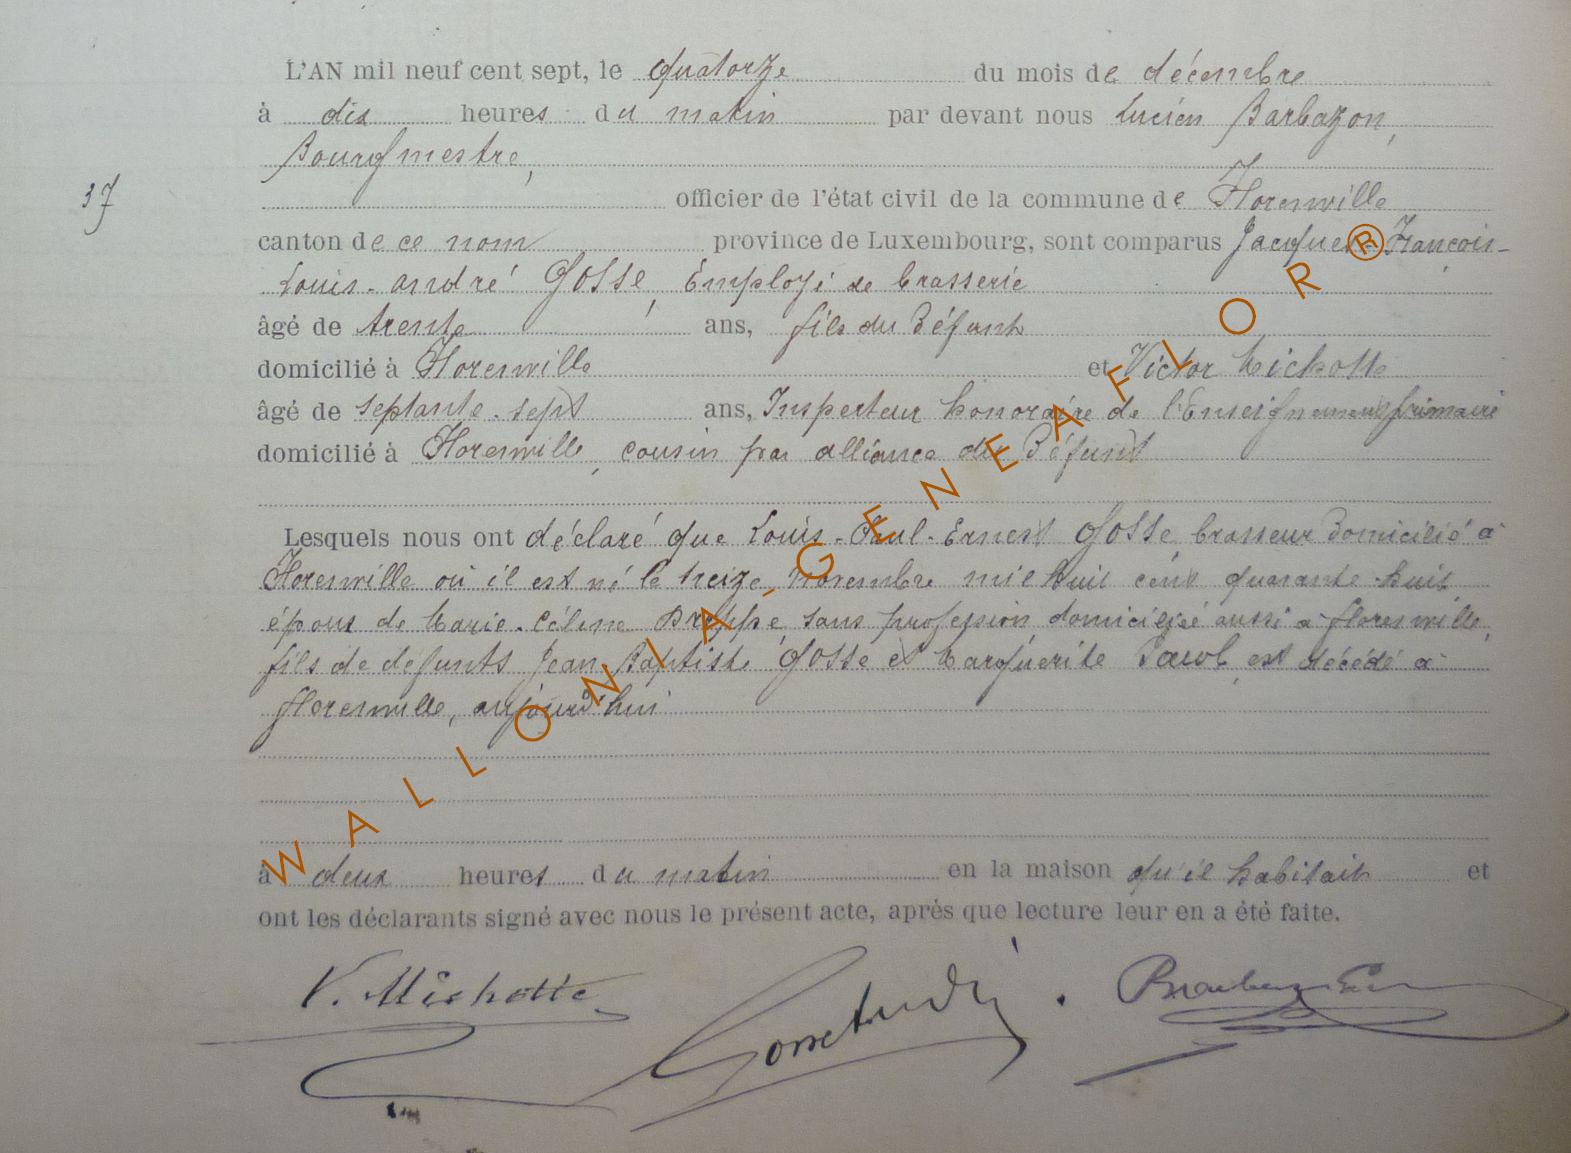 L'AN mil neuf cent sept, le quatorze du mois de décembre
à dix heures du matin par devant nous Lucien Barbazon,
Bourgmestre,
officier de l'état civil de la commune de Florenville
37
canton de ce nom province de Luxembourg, sont comparus Jacques François-
Louis-André Gosse, Employé de brasserie
âgé de trente ans, fils du Défunt
domicilié à Florenville et Victor Michotte
âgé de septante-sept ans, Inspecteur honoraire de l'Enseignement primaire
domicilié à Florenville, cousin par alliance du Défunt
Lesquels nous ont déclaré que Louis-Paul-Ernest Gosse, brasseur Domicilié à
Florenville où il est né le treize novembre mil huit cent quarante-huit
époux de Marie-Céline sans profession domiciliée aussi à florenville,
fils de défunts Jean-Baptiste Gosse et Marguerite est décédé à
florenville, aujourd'hui
à deux heures du matin en la maison qu'il habitait et
ont les déclarants signé avec nous le présent acte, après que lecture leur en a été faite.
V. Michotte
WALLONIA-GENEAFLOR®